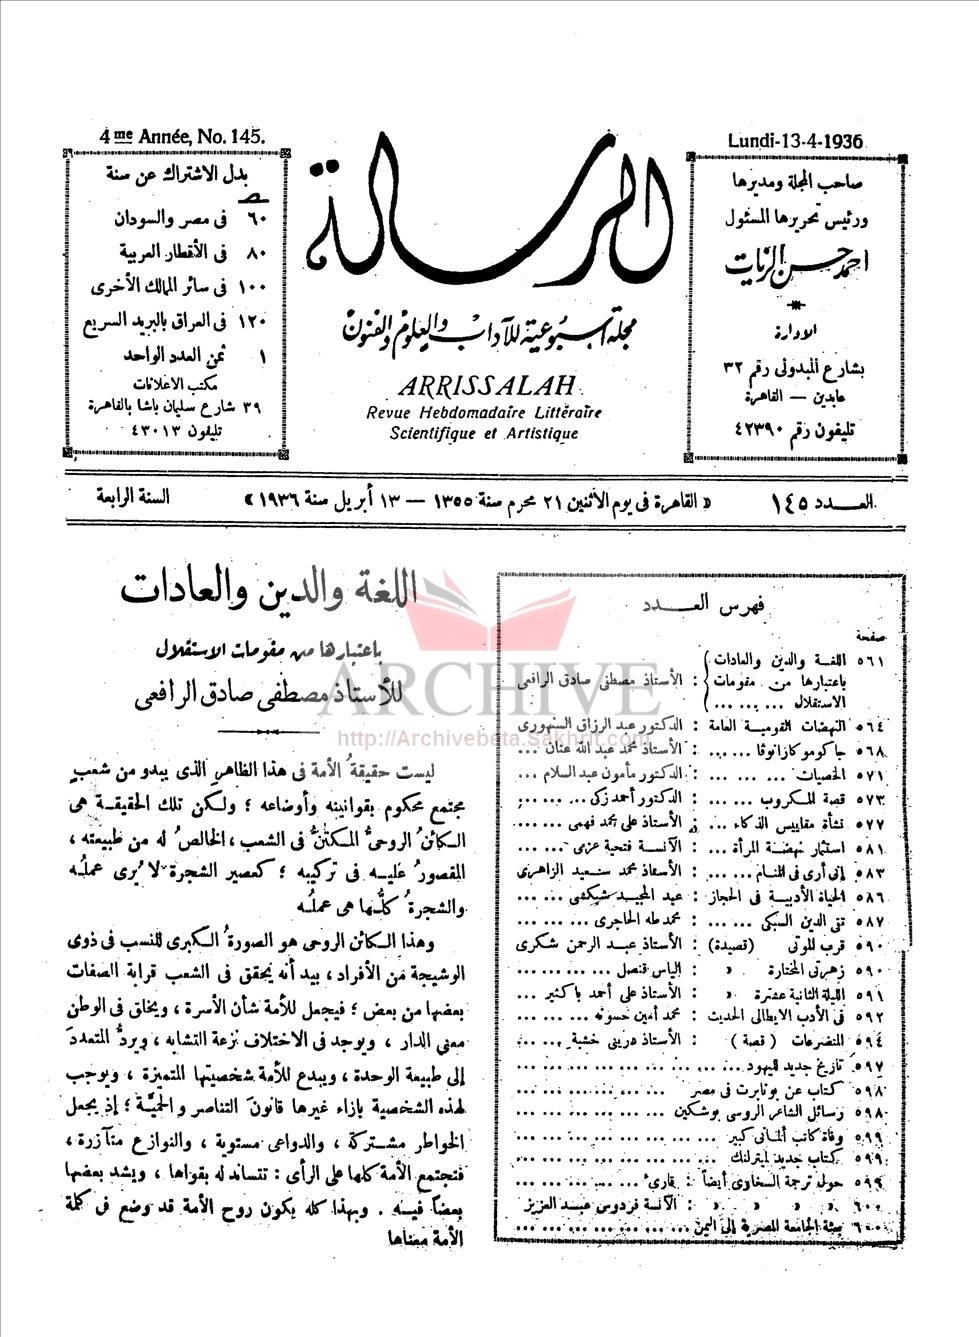 4me Année, No. 145.
Lundi-13-4-1936
صاحب المجلة ومديرها
ورئيس تحريرها المسئول
احمد حسن الزيات
الادارة
بشارع المبدولى رقم ٣٢
عابدين — القاهرة
تليفون رقم ٤٢٣٩٠
الرسالة
مجلة أسبوعية للآداب والعلوم والفنون
ARRISSALAH
Revue Hebdomadaire Littéraire
Scientifique et Artistique
بدل الاشتراك عن سنة
٦٠ فى مصر والسودان
٨٠ فى الأقطار العربية
١٠٠ فى سائر الممالك الأخرى
١٢٠ فى العراق بالبريد السريع
١ ثمن العدد الواحد
مكتب الاعلانات
٣٩ شارع سليمان باشا بالقاهرة
تليفون ٤٣٠١٣
العـــدد ١٤٥
« القاهرة فى يوم الاثنين ٢١ محرم سنة ١٣٥٥ — ١٣ أبريل سنة ١٩٣٦ »
السنة الرابعة
فهرس العـــدد
صفحة
٥٦١ اللغة والدين والعادات
باعتبارها من مقومات : الأستاذ مصطفى صادق الرافعى
الاستقلال ... ... ...
٥٦٤ النهضات القومية العامة : الدكتور عبد الرزاق السنهورى
٥٦٨ جاكومو كازانوفا ... ... : الأستاذ محمد عبد الله عنان ...
٥٧١ الخصيات ... ... ... : الدكتور مأمون عبد السلام ...
٥٧٣ قصة المكروب ... ... : الدكتور أحمد زكى ... ... ...
٥٧٧ نشأة مقاييس الذكاء ... : الأستاذ على محمد فهمى ... ...
٥٨١ استثمار نهضة المرأة ... : الآنسة فتحية عزمى ... ...
٥٨٣ إنى أرى فى المنام ... ... : الأستاذ محمد سعيد الزاهرى
٥٨٦ الحياة الأدبية فى الحجاز : عبد المجيد شبكشى ... ...
٥٨٧ تقى الدين السبكى ... ... : محمد طه الحاجرى ... ...
٥٩٠ قرب الموتى (قصيدة) : الأستاذ عبد الرحمن شكرى
٥٩٠ زهرتى المختارة » : الياس قنصل ... ... ... ...
٥٩١ الليلة الثانية عشرة » : الأستاذ على أحمد باكثير ...
٥٩٢ فى الأدب الايطالى الحديث : محمد أمين حسونه ... ...
٥٩٤ المتضرعات ( قصة ) : الأستاذ درينى خشبة ... ...
٥٩٧ تاريخ جديد لليهود ... ... ... ... ... ... ...
٥٩٨ كتاب عن بونابرت فى مصر ... ... ... ... ...
٥٩٨ رسائل الشاعر الروسى بوشكين ... ... ... ...
٥٩٩ وفاة كاتب ألمانى كبير ... ... ... ... ... ...
٥٩٩ كتاب جديد لميترلنك ... ... ... ... ... ...
٥٩٩ حول ترجمة السخاوى أيضاً : قارئ ... ... ... ...
٦٠٠ » » » » : الآنسة فردوس عبد العزيز
٦٠٠ بعثة الجامعة المصرية إلى اليمن ... ... ... ...
اللغة والدين والعادات
باعتبارها من مقومات الاستقلال
للأستاذ مصطفى صادق الرافعى
ليست حقيقةُ الأمة فى هذا الظاهر الذى يبدو من شعبٍ
مجتمع محكوم بقوانينه وأوضاعه ؛ ولكن تلك الحقيقـة هى
الكائنُ الروحىُّ المكتنُّ فى الشعب ، الخالصُ له من طبيعته ،
المقصورُ عليـه فى تركيبه ؛ كعصير الشجرة لا يُرى عملُه
والشجرةُ كلُّها هى عملُه
وهذا الكائن الروحى هو الصورةُ الكبرى للنسب فى ذوى
الوشيجة من الأفراد ، بيد أنه يحقق فى الشعب قرابة الصفات
بعضها من بعض ؛ فيجعل للأمة شأن الأسرة ، ويخلق فى الوطن
معنى الدار ، ويوجد فى الاختلاف نزعة التشابه ، ويردُّ المتعددَ
إلى طبيعة الوحدة ، ويبدع للأمة شخصيتها المتميزة ، ويوجب
لهذه الشخصية بازاء غيرها قانونَ التناصر والحميّة ؛ إذ يجعل
الخواطر مشتركة ، والدواعى مستوية ، والنوازع متآزرة ،
فتجتمع الأمة كلها على الرأى : تتساند له بقواها ، ويشد بعضها
بعضاً فيه . وبهذا كله يكون روح الأمة قد وضع فى كلمة
الأمة معناها
ARCHIVE
http://Archivebeta.Sakhrit.com